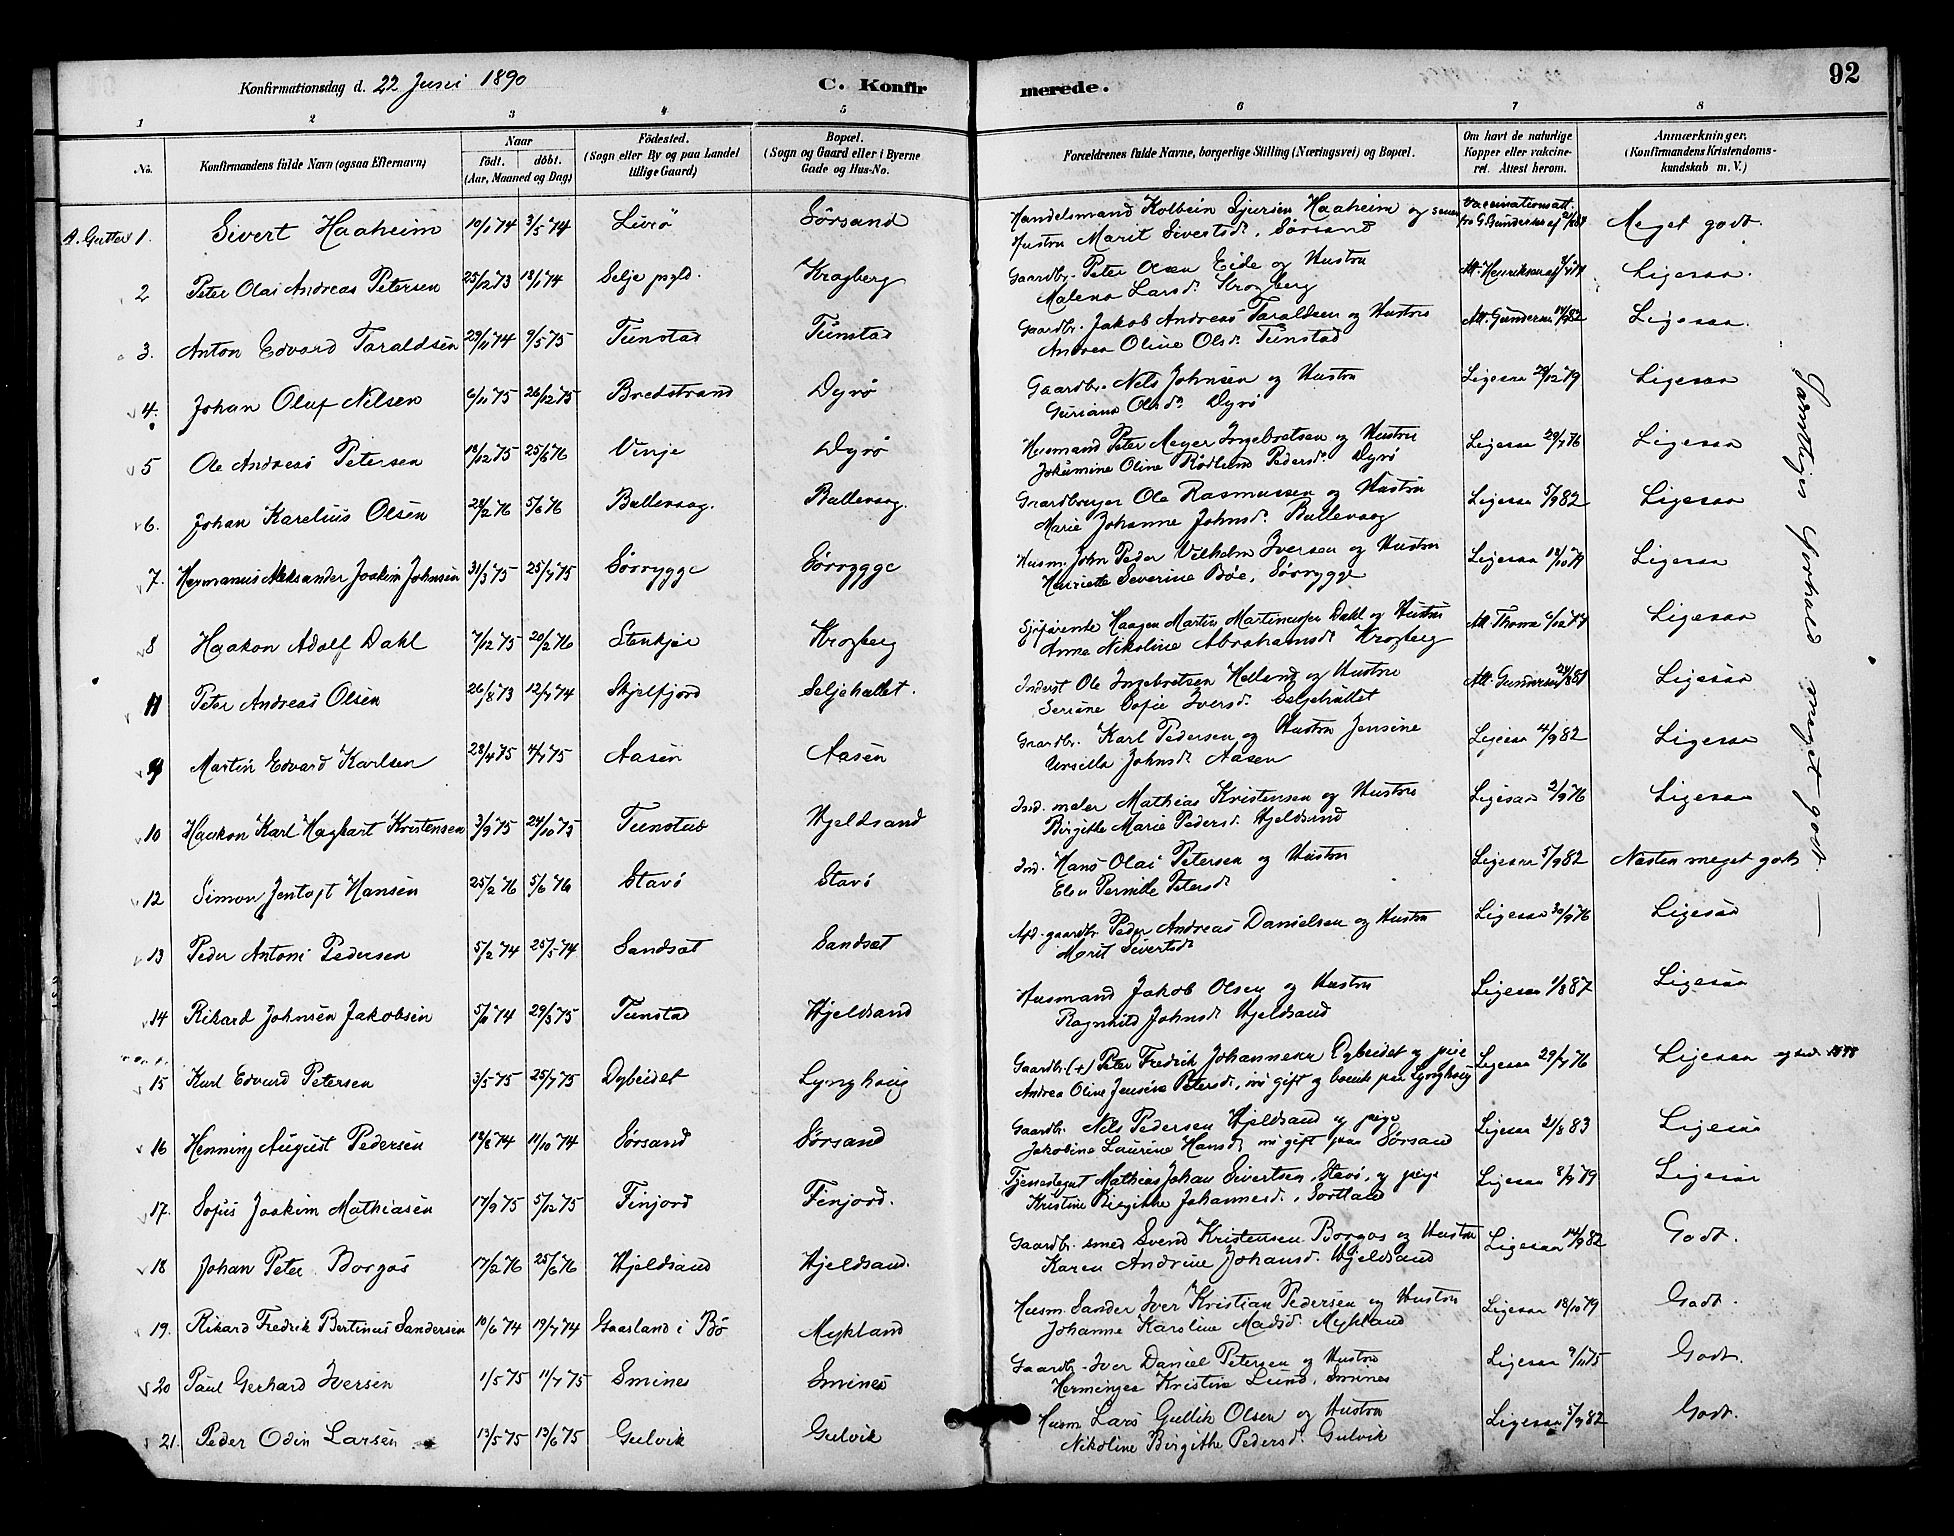 Konfirmationsdag d. 22 Juni 1890
C. Konfir
merede.
92
1 2 3 4 5 6 7 8
No.
Konfirmandens fulde Navn (ogsaa Efternavn)
Naar
födt. döbt.
(Aar, Maaned og Dag)
Födested.
(Sogn eller By og paa Landet
tillige Gaard)
Bopæl.
(Sogn og Gaard eller i Byerne
Gade og Hus-No.
Forældrenes fulde Navne, borgerlige Stilling (Næringsvei) og Bopæl.
Om havt de naturlige
Kopper eller vakcine-
ret. Attest herom.
Anmærkninger.
(Konfirmandens Kristendoms-
kundskab m. V.)
A. Gutter 1. Sivert Haaheim 10/1 74 3/5 74 Livö Sörsand Handelsmand Kolbein Sjursen Haaheim og Vaccinationsatt. Meget godt.
Hustru Marit Sivertsd. Sörsand
2 Peter Olai Andreas Petersen 25/12 73 18/1 74 Selje pgld. Krogberg Gaardbr. Peter Olsen Eide og Hustru Att. Henriksen Ligesaa.
Malena Larsd. Krogberg
3. Anton Edvard Taraldsen 29/11 74 9/5 75 Tunstad Tunstad Gaardbr. Jakob Andreas Taraldsen og Hustru Att. Gundersen 82 Ligesaa.
Andrea Oline Olsd. Tunstad
4. Johan Oluf Nilsen 6/11 75 26/12 75 Bredstrand Dyrö Gaardbr. Nels Johnsen og Hustru Ligesaa 29/12 79 Ligesaa
Guriana Olsd. Dyrö
5 Ole Andreas Petersen 18/12 75 25/6 76 Vinje Dyrö Husmand Peter Meyer Ingebretsen og Hustru Ligesaa 29/7 76 Ligesaa
Jokumine Oline Rödlund Pedersd. Dyrö
6. Johan Karelius Olsen 28/2 76 5/6 76 Ballevaag. Ballevaag. Gaardbruger Ole Rasmussen og Hustru Ligesaa 5/9 82 Ligesaa
Marie Johanne Johnsd. Ballevaag
7. Hermanus Aleksander Joakim Johnsen 31/3 75 25/7 75 Sörrygge Sörrygge Husm. John Peder Vilhelm Iversen og Hustru Ligesaa 18/10 79 Ligesaa
Henriette Severine Böe, Sörrygge
8 Haakon Adolf Dahl 7/12 75 20/2 76 Stenkjær Krogberg Sjöfarende Haagen Martin Martinusen Dahl og Hustru Att. Thomæ 6/12 77 Ligesaa
Anne Nikoline Abrahamsd. Krogberg
11 Peter Andreas Olsen 26/8 73 12/7 74 Skjelfjord Seljehullet. Inderst Ole Ingebretsen Helland og Hustru Att. Gundersen Ligesaa
Seriane Sofie Iversd. Seljehullet
9 Martin Edvard Karlsen 28/4 75 4/7 75 Aasen Aasen Gaardbr. Karl Pedersen og Hustru Jensine Ligesaa 4/9 82 Ligesaa
Ursilla Johnsd. Aasen
10 Haakon Karl Hagbart Kristensen 3/9 75 24/10 75 Tunstad Hjeldsand Ind. maler Mathias Kristensen og Hustru Ligesaa 2/9 76 Ligesaa
Birgitte Marie Pedersd. Hjeldsand
12 Simon Jentoft Hansen 25/2 76 5/6 76 Stavö Stavö Ind. Hans Olai Petersen og Hustru Ligesaa 5/9 82 Næsten meget godt
Elen Pernille Petersd.
13 Peder Antoni Pedersen 5/2 74 25/5 74 Sandsæt Sandsæt Afd. gaardbr. Peder Andreas Danielsen og Hustru Ligesaa 30/9 76 Ligesaa
Marit Sivertsd.
14 Rikard Johnsen Jakobsen 5/11 74 29/3 75 Tunstad Hjeldsand Husmand Jakob Olsen og Hustru Ligesaa 1/8 87 Ligesaa
Ragnhild Johnsd. Hjeldsand
15 Karl Edvard Petersen 3/5 75 25/7 75 Dybeidet Lynghaug Gaardbr. (+) Peter Fredrik Johannesen Dybeidet og pige Ligesaa 29/7 76 Ligesaa
Andrea Oline Jensine Petersd., nu gift og boende paa Lynghaug
16 Henning August Pedersen 18/8 74 11/10 74 Sörsand Sörsand Gaardbr. Nels Pedersen Hjeldsand og pige Ligesaa 2/8 83 Ligesaa
Jakobine Laurine Hansd. nu gift paa Sörsand
17. Sofus Joakim Mathiasen 17/9 75 5/12 75 Finjord Finjord. Tjenestegut Mathias Johan Sivertsen, Stavö, og pige Ligesaa 8/7 79 Ligesaa
Kristine Birgitte Johannesd., Sortland
18 Johan Peter Borgos 17/2 76 25/6 76 Hjeldsand Hjeldsand. Gaardbr. smed Svend Kristensen Borgos og Hustru Ligesaa 14/9 82 Godt.
Karen Andrine Johansd. Hjeldsand
19. Rikard Fredrik Bertinus Sandersen 10/6 74 19/7 74 Gaasland i Bö Mykland Husm. Sander Iver Kristian Pedersen og Hustru Ligesaa 18/10 79 Godt.
Johanne Karoline Madsd. Mykland
20 Paul Gerhard Iversen 1/5 75 11/7 75 Smines Smines Gaardbr. Iver Daniel Petersen og Hustru Ligesaa 9/11 75 Godt.
Herminges Kristine Lund, Smines
21. Peder Odin Larsen 13/5 75 13/6 75 Gulvik Gulvik Husm. Lars Gullik Olsen og Hustru Ligesaa 5/9 82 Godt.
Nikoline Birgithe Pedersd. Gulvik
Samtlige Forhold meget godt. —